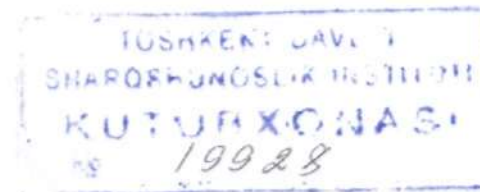 TOSHKENT DAVLAT
SHARQSHUNOSLIK INSTITUTI
KUTUBXONASI
№ 19928